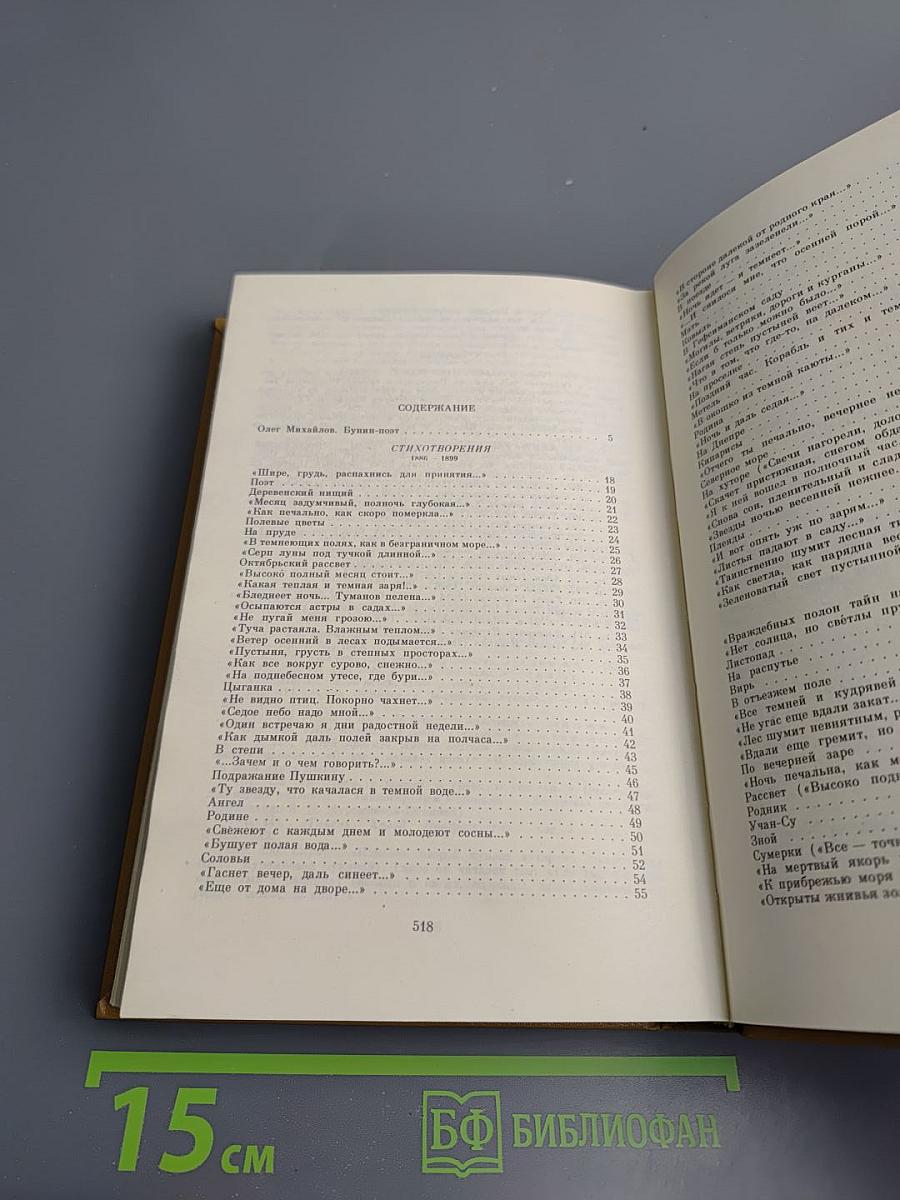 СОДЕРЖАНИЕ
Олег Михайлов. Бунин-поэт . . . 5
СТИХОТВОРЕНИЯ
1886 — 1899
«Шире, грудь, распахнись для принятия...» . . . 18
Поэт . . . 19
Деревенский нищий . . . 20
«Месяц задумчивый, полночь глубокая...» . . . 21
«Как печально, как скоро померкла...» . . . 22
Полевые цветы . . . 23
На пруде . . . 24
«В темнеющих полях, как в безграничном море...» . . . 25
«Серп луны под тучкой длинной...» . . . 26
Октябрьский рассвет . . . 27
«Высоко полный месяц стоит...» . . . 28
«Какая теплая и темная заря!..» . . . 29
«Бледнеет ночь... Туманов пелена...» . . . 30
«Осыпаются астры в садах...» . . . 31
«Не пугай меня грозою...» . . . 32
«Туча растаяла. Влажным теплом...» . . . 33
«Ветер осенний в лесах подымается...» . . . 34
«Пустыня, грусть в степных просторах...» . . . 35
«Как все вокруг сурово, снежно...» . . . 36
«На поднебесном утесе, где бури...» . . . 37
Цыганка . . . 38
«Не видно птиц. Покорно чахнет...» . . . 39
«Седое небо надо мной...» . . . 40
«Один встречаю я дни радостной недели...» . . . 41
«Как дымкой даль полей закрыв на полчаса...» . . . 42
В степи . . . 43
«...Зачем и о чем говорить?...» . . . 45
Подражание Пушкину . . . 46
«Ту звезду, что качалася в темной воде...» . . . 47
Ангел . . . 48
Родине . . . 49
«Свежеют с каждым днем и молодеют сосны...» . . . 50
«Бушует полая вода...» . . . 51
Соловьи . . . 52
«Гаснет вечер, даль синеет...» . . . 54
«Еще от дома на дворе...» . . . 55
518
«В стороне далекой от родного края...»
«За рекой луга зазеленели...»
В поезде
«Ночь идет — и темнеет...»
Мать
«И снилося мне, что осенней порой...»
Ковыль
В Гефсиманском саду
«Могилы, ветряки, дороги и курганы...»
«Если б только можно было...»
«Нагая степь пустыней веет...»
«Что в том, что где-то, на далеком...»
На проселке
«Поздний час. Корабль и тих и тем
Метель
«В окошко из темной каюты...»
Родина
«Ночь и даль седая...»
На Днепре
Кипарисы
«Отчего ты печально, вечернее не
Северное море
На хуторе («Свечи нагорели, дол
«Скачет пристяжная, снегом обда
«И к ней вошел в полночный час.
«Снова сон, пленительный и слад
«Звезды ночью весенней нежнее.
Плеяды
«И вот опять уж по зарям...»
«Листья падают в саду...»
«Таинственно шумит лесная ти
«Как светла, как нарядна вес
«Зеленоватый свет пустынной
«Враждебных полон тайн н
«Нет солнца, но светлы пру
Листопад
На распутье
Вирь
В отъезжем поле
«Все темней и кудрявей
«Не угас еще вдали закат..
«Лес шумит невнятным, р
«Вдали еще гремит, но
По вечерней заре
«Ночь печальна, как м
Рассвет («Высоко под
Родник
Учан-Су
Зной
Сумерки («Все — точн
«На мертвый якорь
«К прибрежью моря
«Открыты жнивья зол
15 см
БФ БИБЛИОФАН